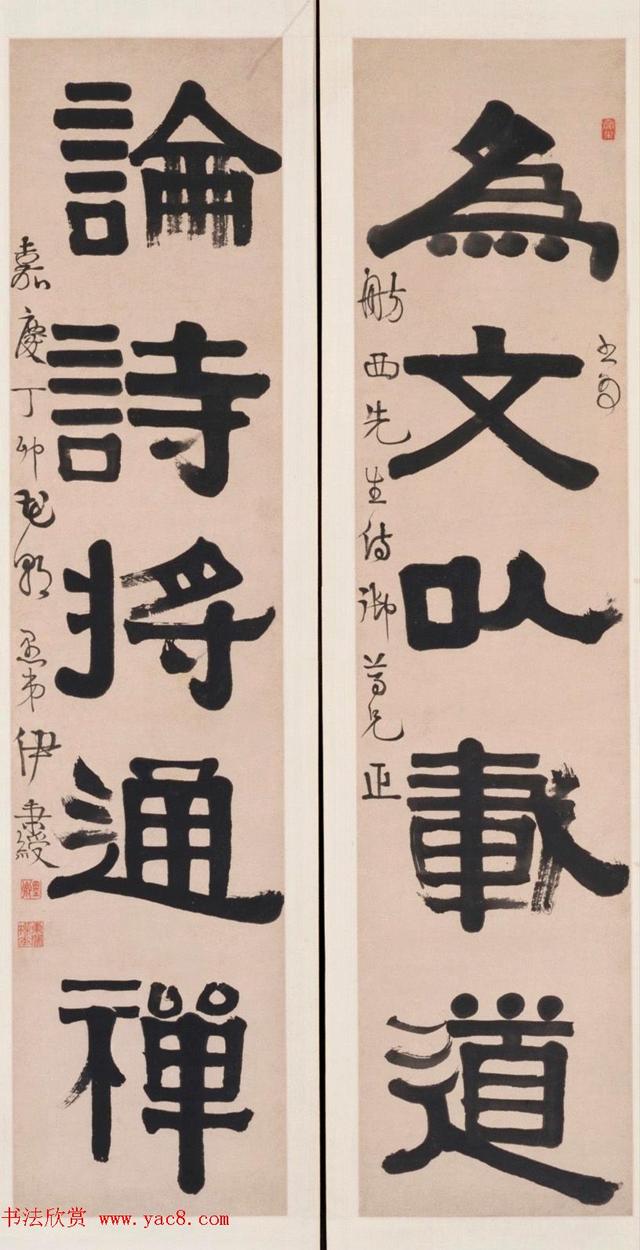 為文以載道
書為
舫西先生侍御尊兄正
論詩將通禪
嘉慶丁卯花朝愚弟伊秉綬
书法欣赏 www.yac8.com